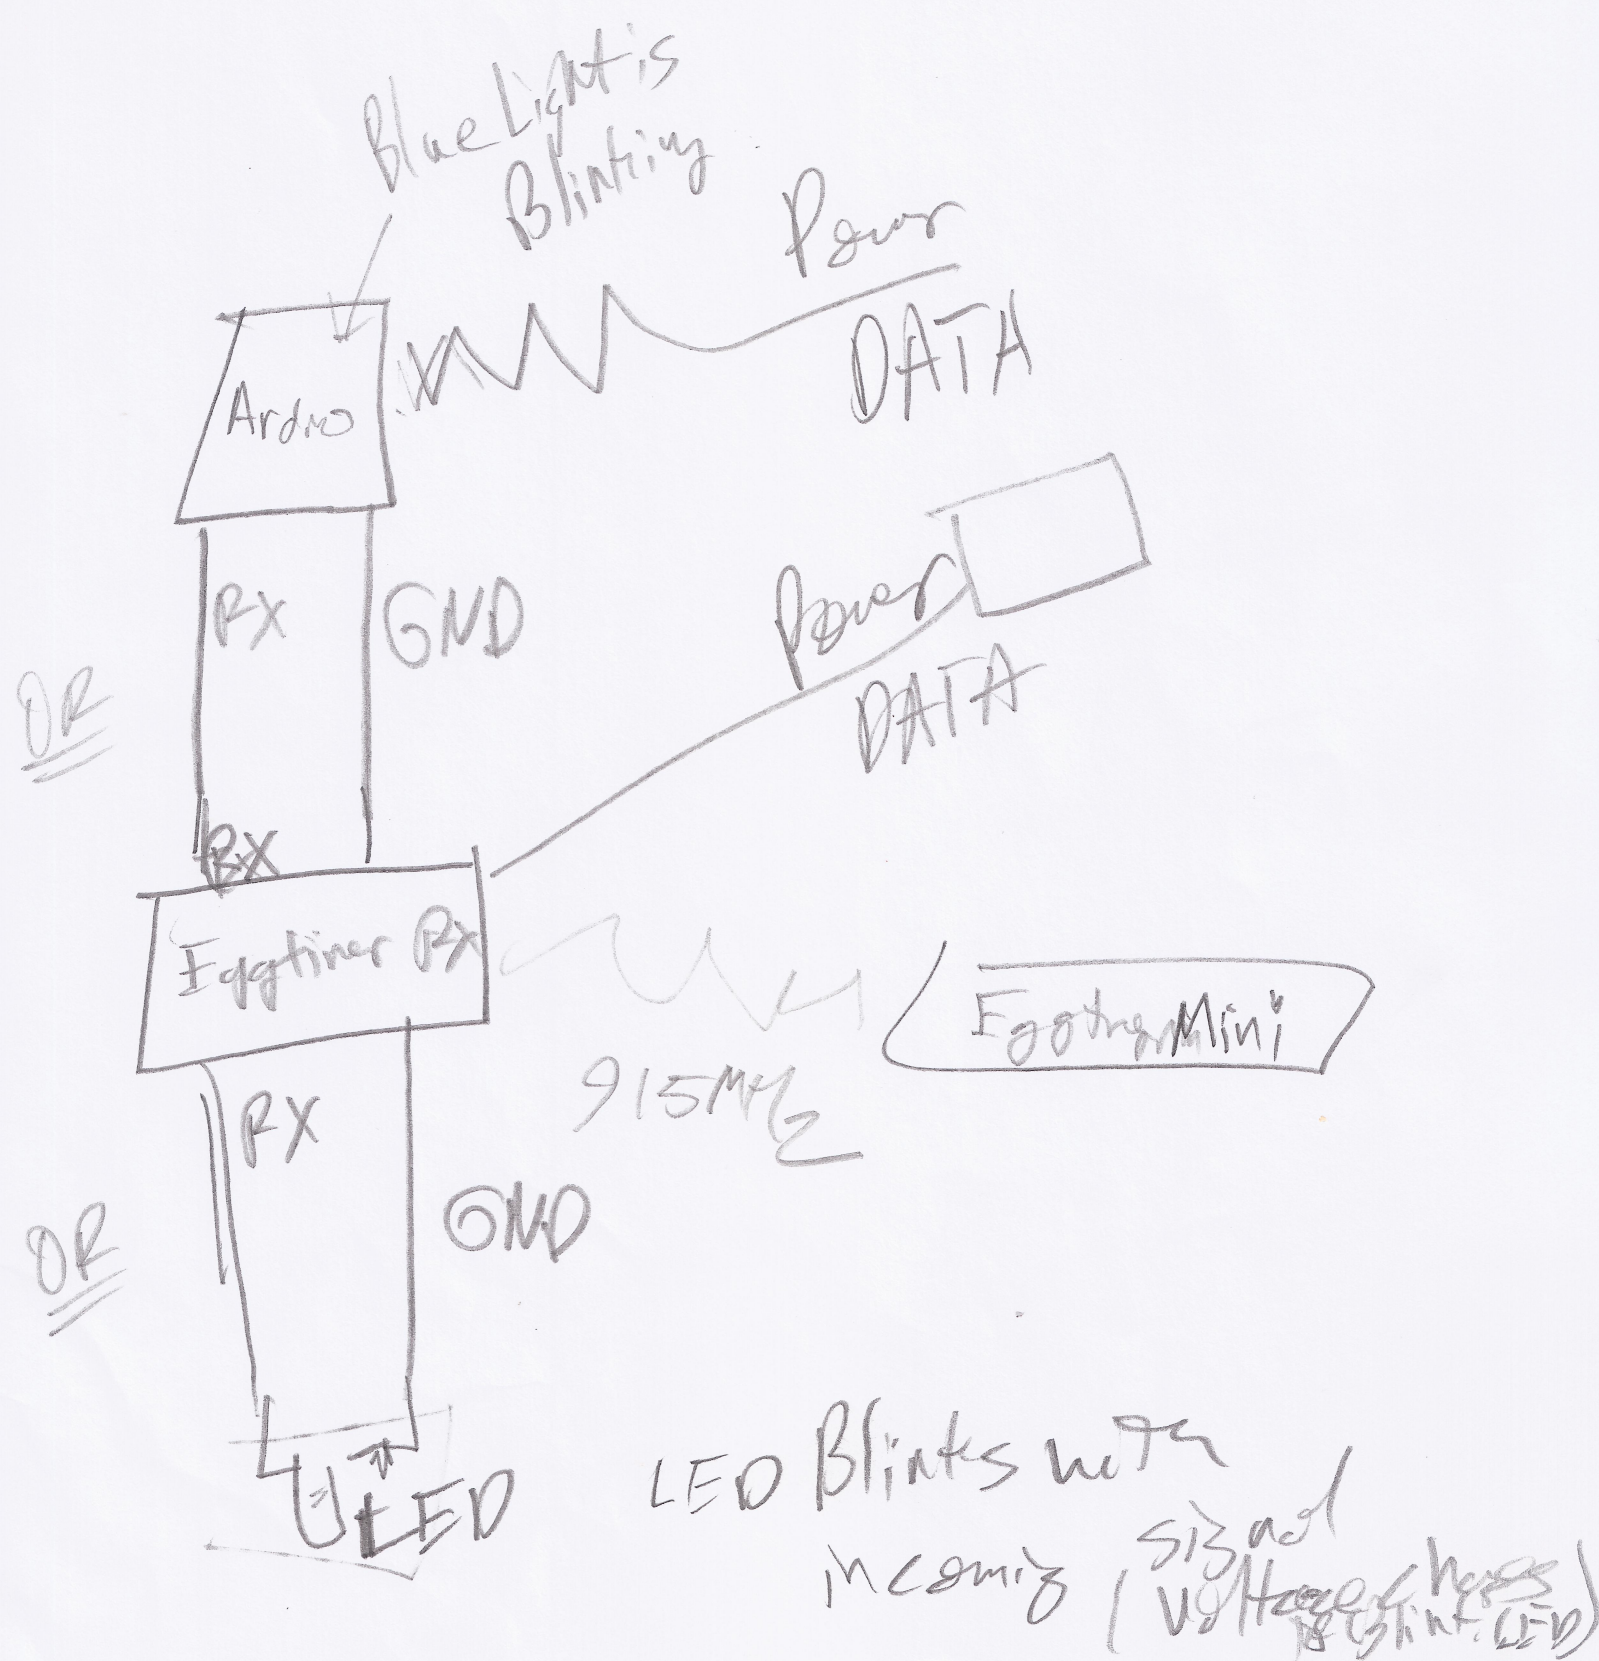 Blue Light is
Blinking
Power
DATA
Ardno
RX
GND
OR
Power
DATA
RX
Eggtimer Rx
Eggtimer Mini
915MHz
RX
GND
OR
LED
LED Blinks with
incoming signal
(Voltage changes
LED)